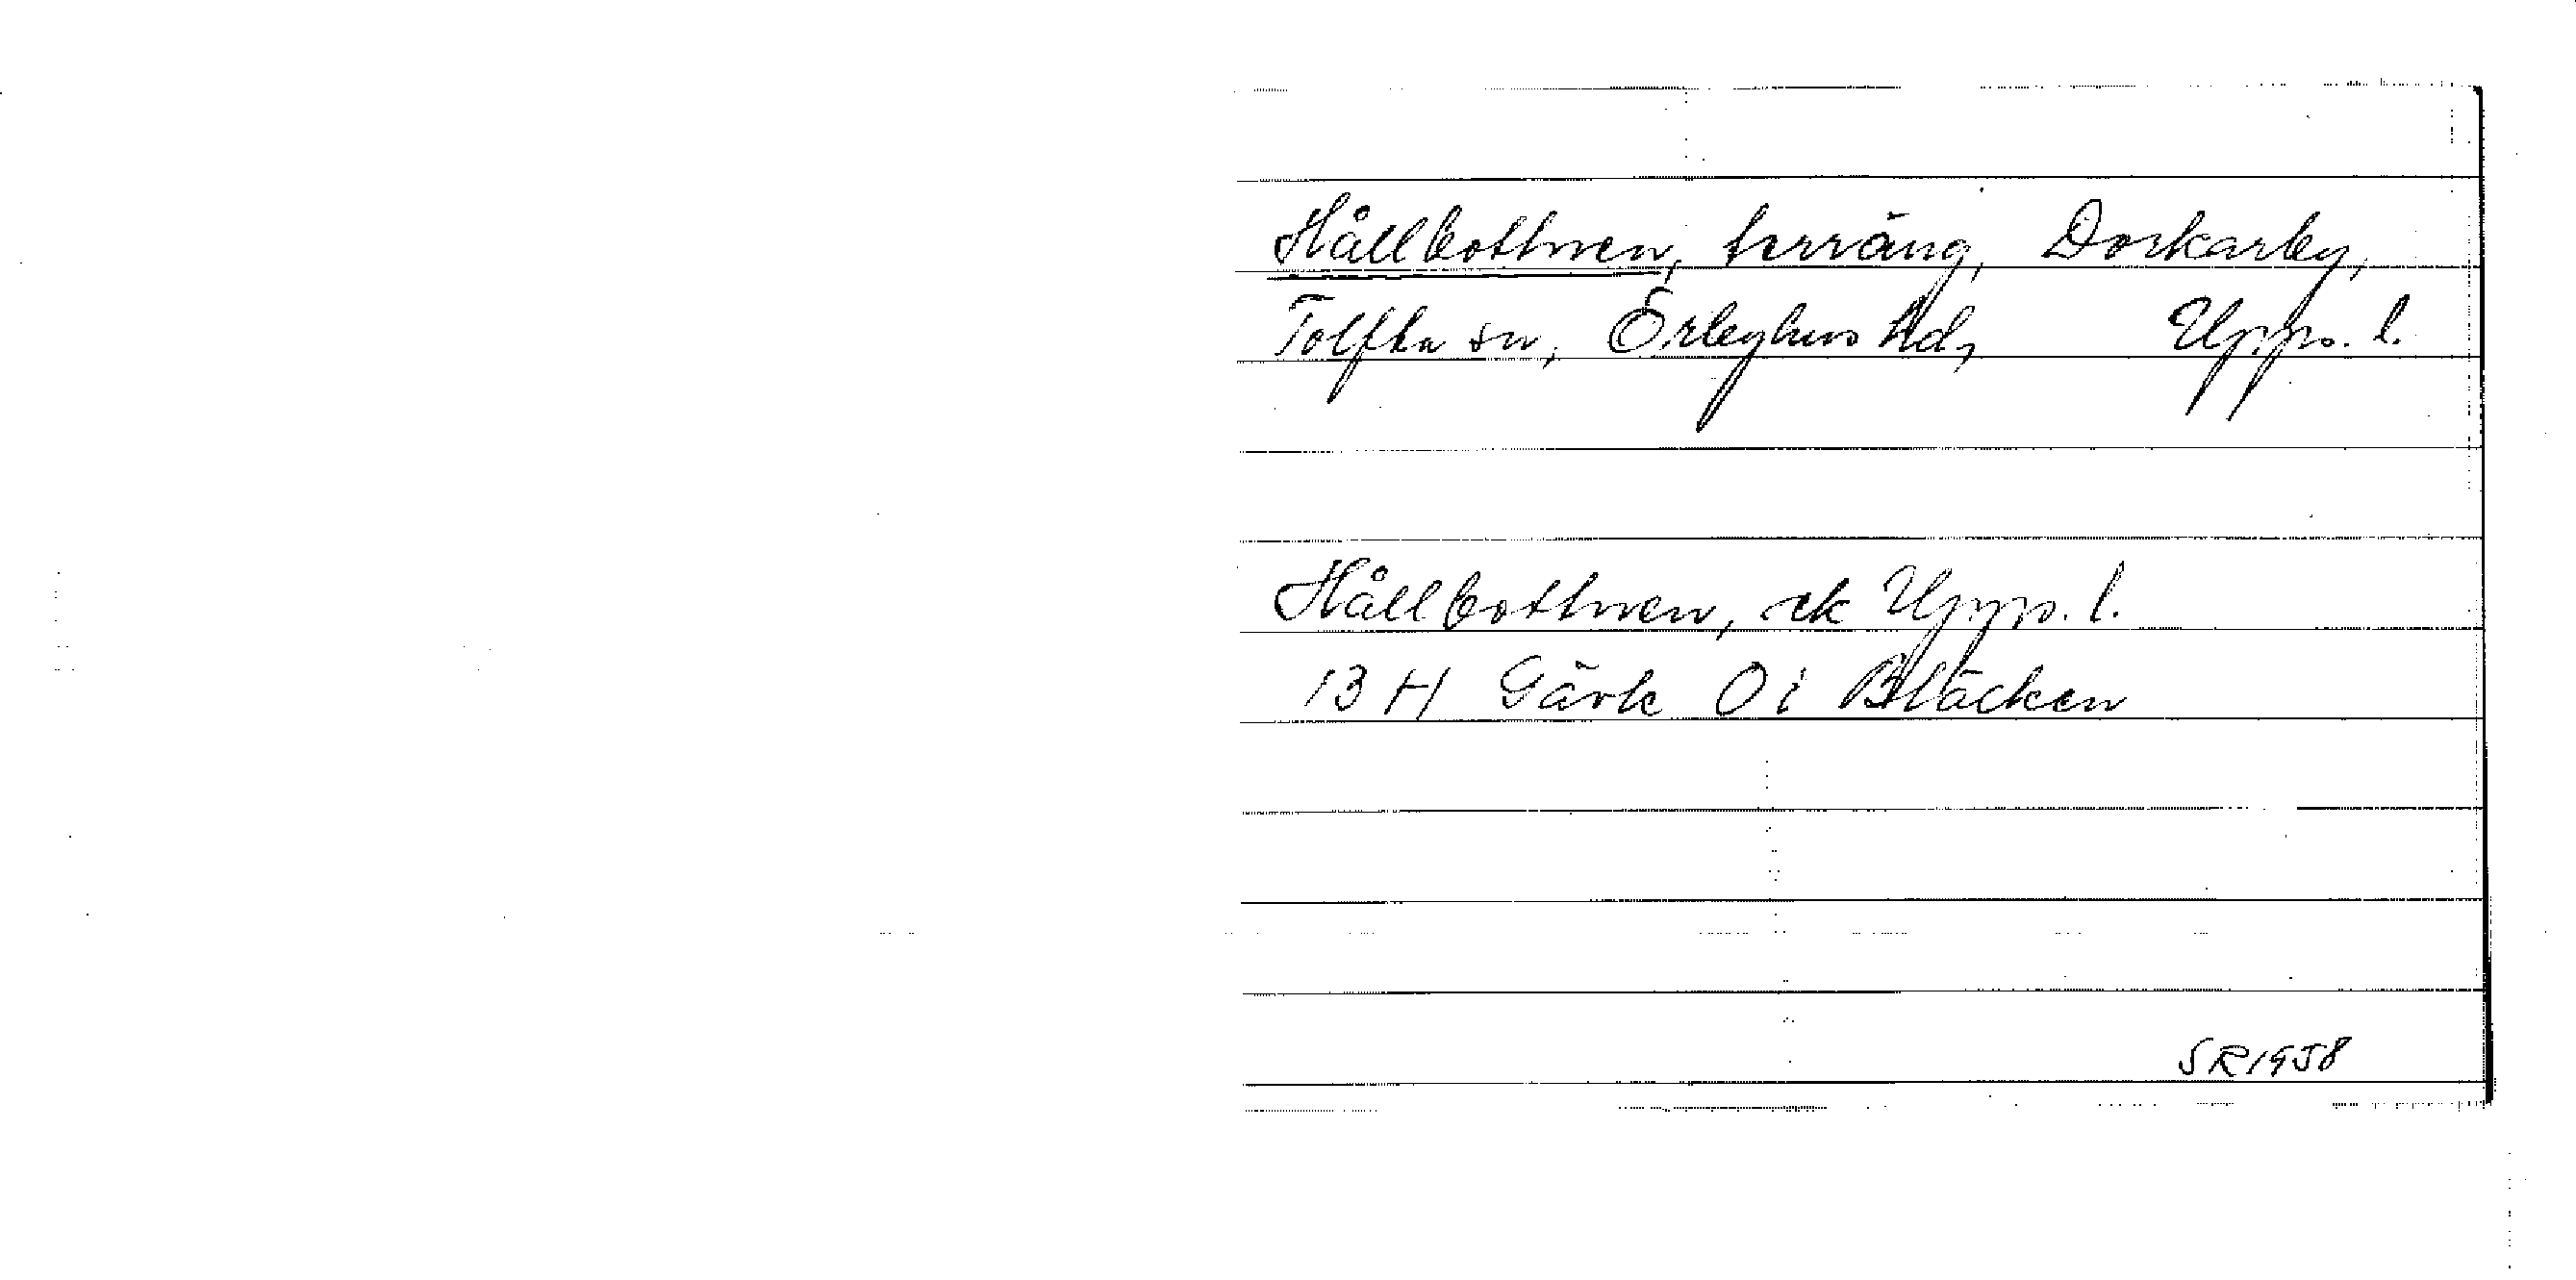 Hållbottnen, terräng, Dorkarby,
Tolfta sn, Örbyhus hd, Upps. l.
Hållbottnen, ek Upps. l.
13 H Gävle 0 i Bläcken
SR 1958